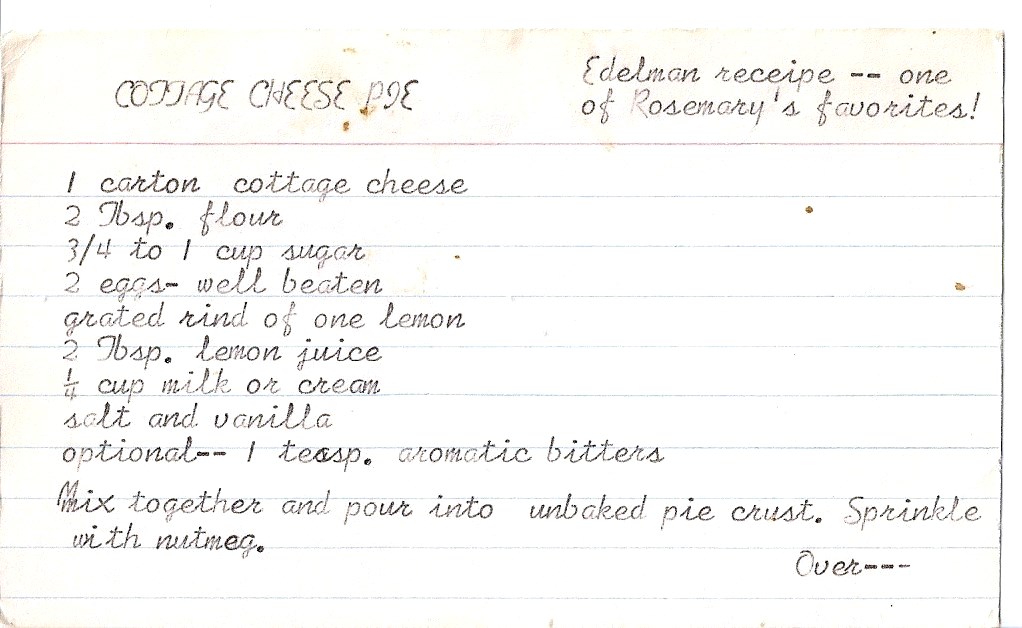 COTTAGE CHEESE PIE
Edelman receipe -- one
of Rosemary's favorites!
1 carton cottage cheese
2 Tbsp. flour
3/4 to 1 cup sugar
2 eggs- well beaten
grated rind of one lemon
2 Tbsp. lemon juice
¼ cup milk or cream
salt and vanilla
optional-- 1 teasp. aromatic bitters
Mix together and pour into unbaked pie crust. Sprinkle
with nutmeg.
Over---